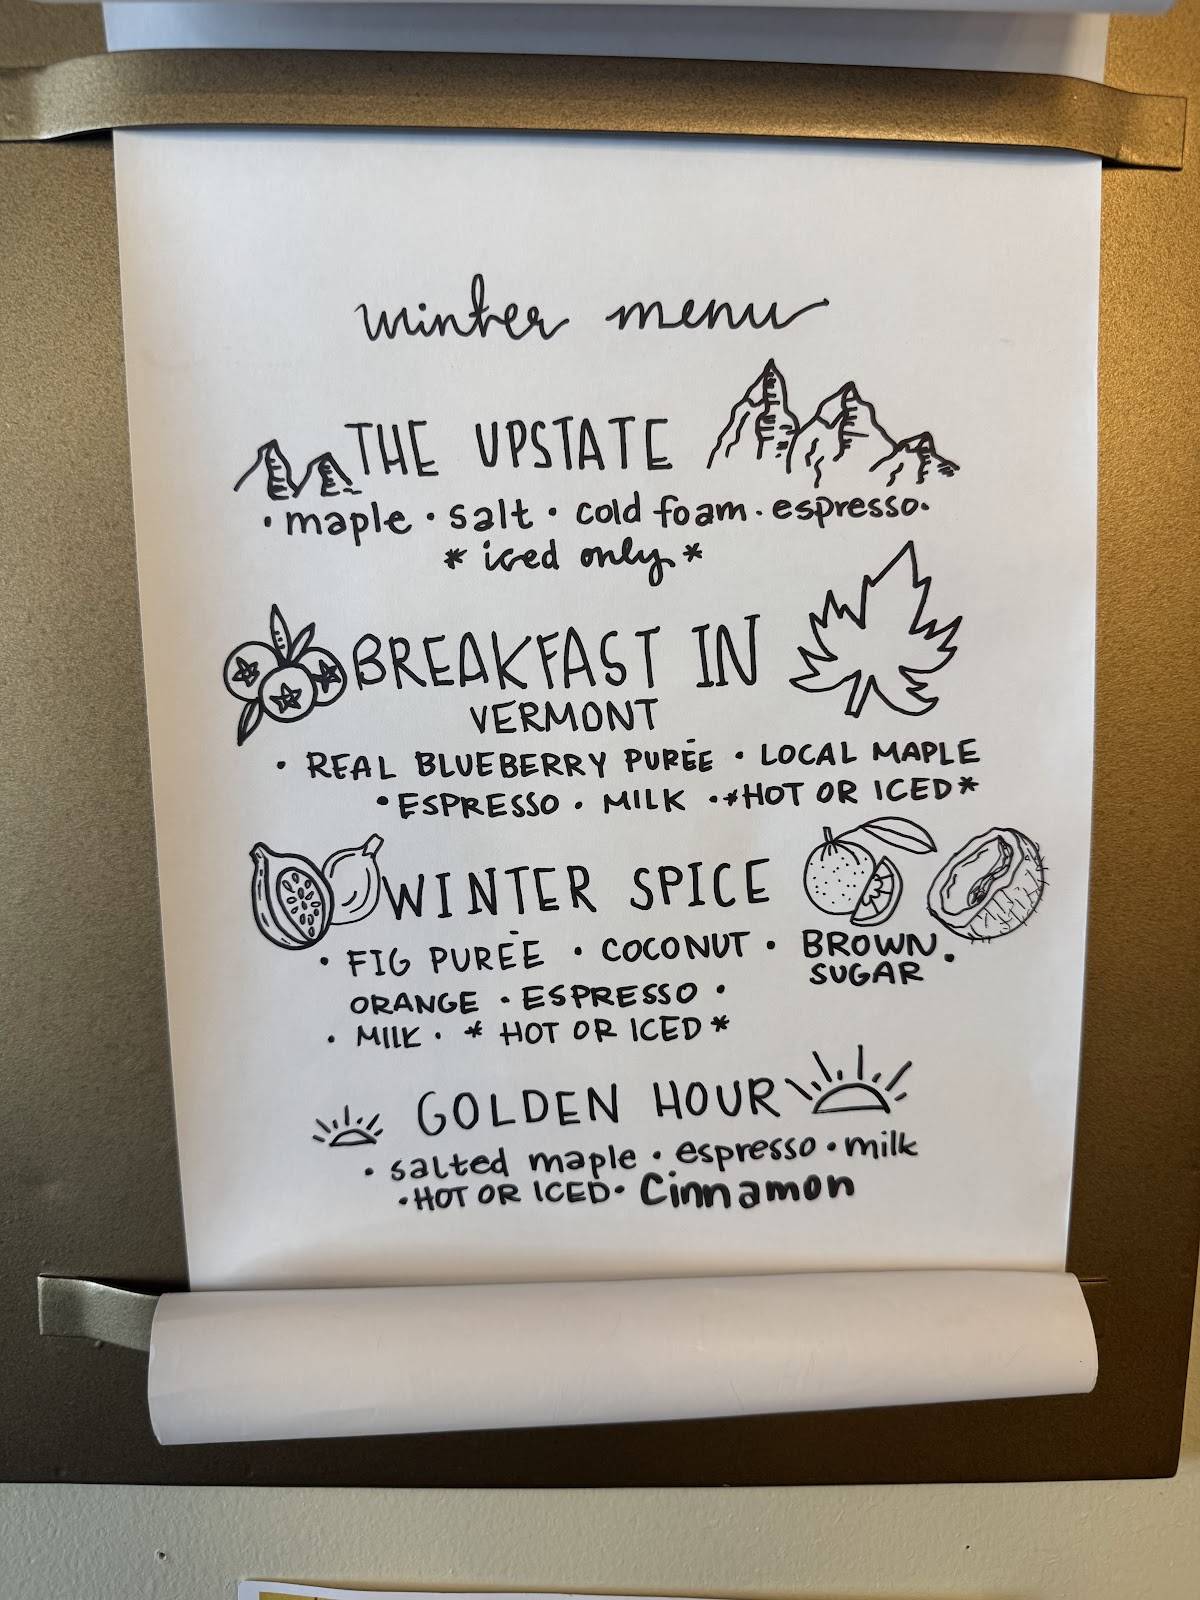 winter menu
THE UPSTATE
• maple • salt • cold foam • espresso •
* iced only *
BREAKFAST IN
VERMONT
• REAL BLUEBERRY PURĖE • LOCAL MAPLE
• ESPRESSO • MILK • *HOT OR ICED*
WINTER SPICE
• FIG PURĖE • COCONUT • BROWN SUGAR •
ORANGE • ESPRESSO •
• MILK • * HOT OR ICED *
GOLDEN HOUR
• salted maple • espresso • milk
• HOT OR ICED • Cinnamon